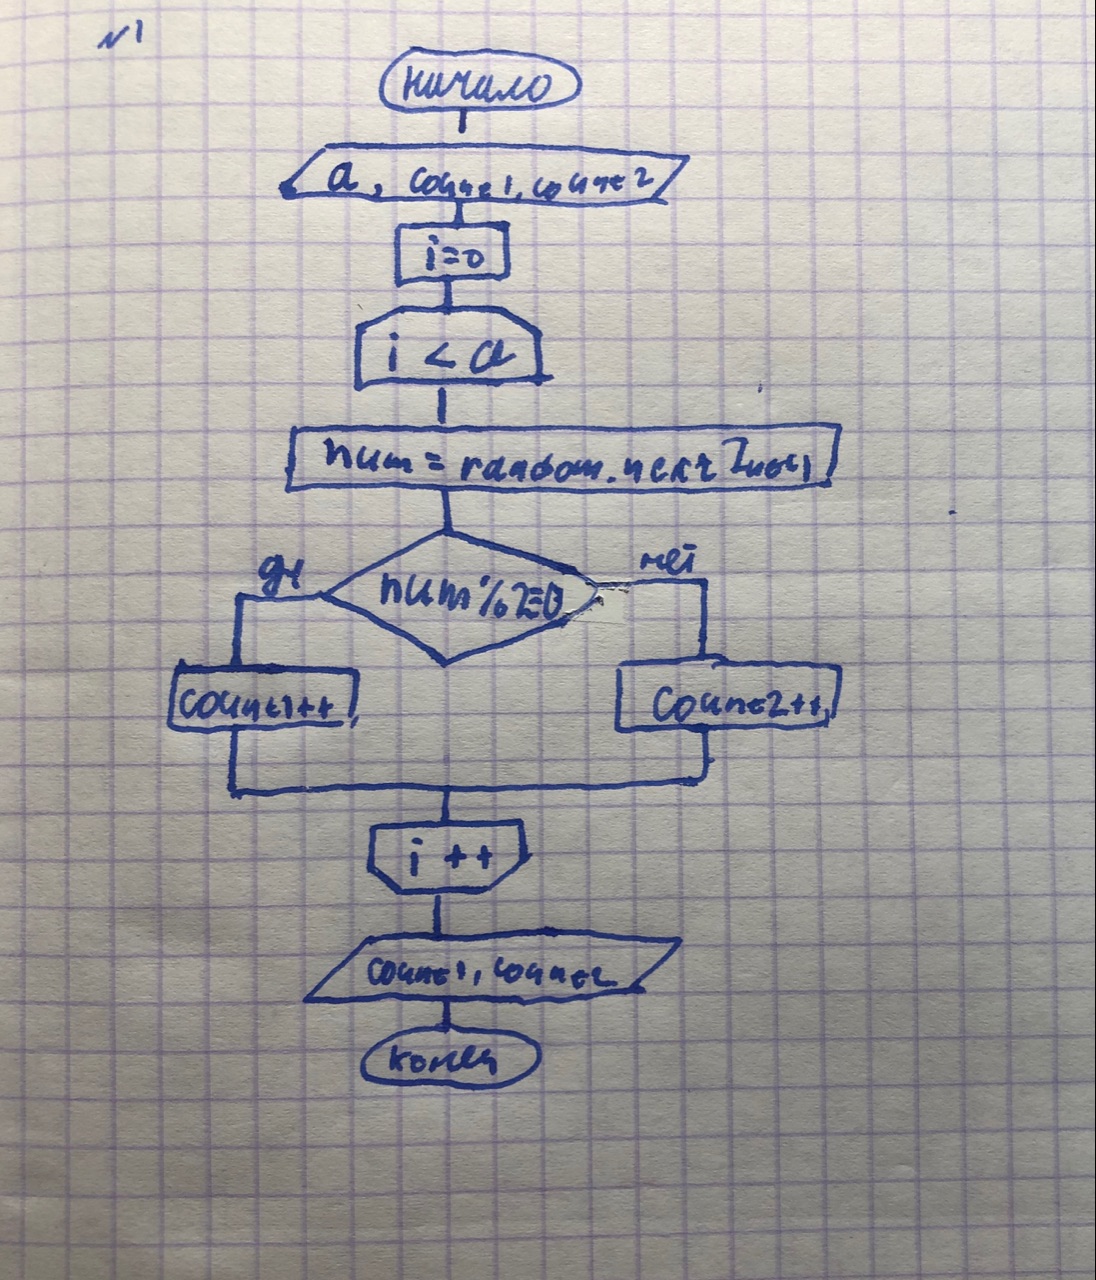 №1
начало
a, count1, count2
i=0
i < a
num = random.nextInt()
да
нет
num%2==0
count1++
count2++
i ++
count1, count2
конец